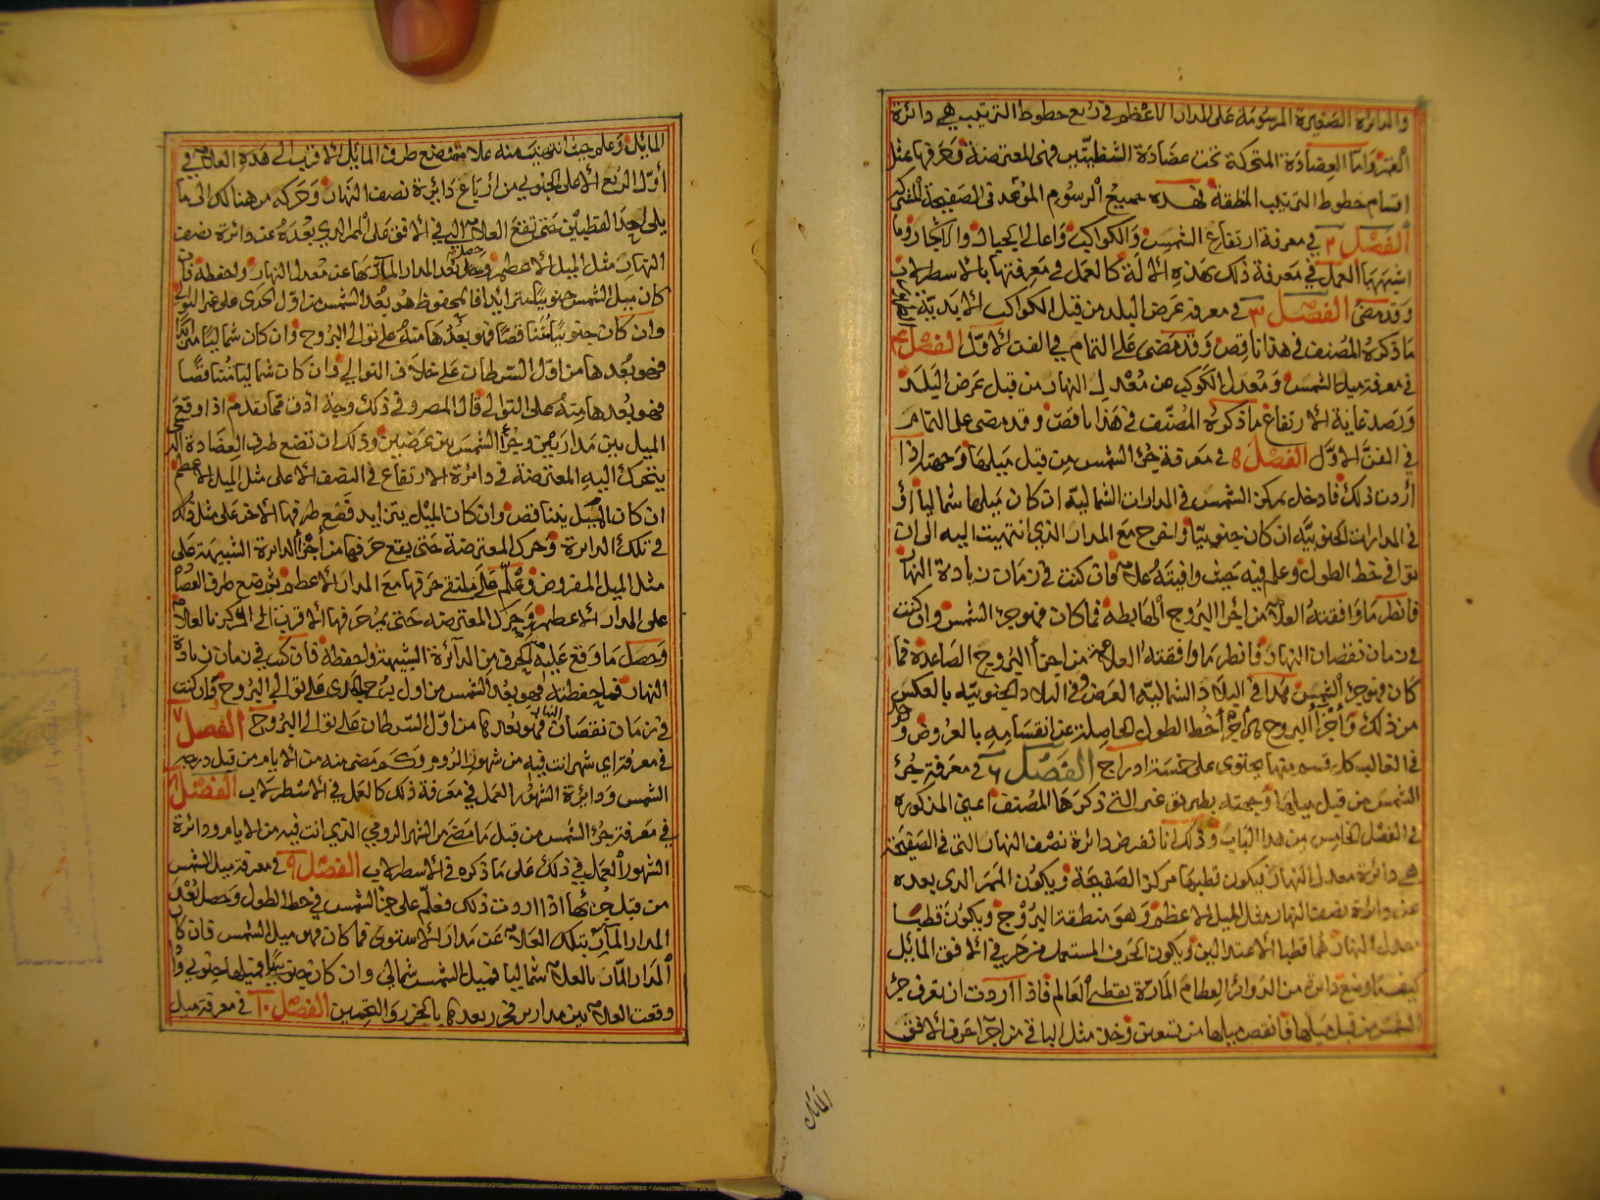 والدائرة الصغيرة المرسومة على المدار الاعظم في ربع خطوط الترتيب هي دائرة
القمر واما العضادة المتحركة تحت عضادة الشظيتين فهى المعترضة وحرفها مثل
اقسام خطوط الترتيب المنطقة فهذه جميع الرسوم الموضوعة فى الصفيحة
الفصل ٢ في معرفة ارتفاع الشمس والكواكب واعالى الجبال والاشجار وما
اشبهها العمل في معرفة ذلك بهذه الالة كالعمل في معرفتها بالاسطرلاب
وقد مضى الفصل ٣ في معرفة عرض البلد من قبل الكواكب الابدية
ما ذكره المصنف في هذا ناقص وقد مضى على التمام في الفن الاول الفصل ٤
في معرفة ميل الشمس ومعدل الكوكب عن معدل النهار من قبل عرض البلد
ورصد غاية الارتفاع ما ذكره المصنف في هذا ناقص وقد مضى على التمام
في الفن الاول الفصل ٥ في معرفة جزء الشمس من قبل ميلها وجهتها اذا
أردت ذلك فادخل بمركز الشمس في المدارات الشمالية ان كان ميلها شماليا أو
في المدارات الجنوبية ان كان جنوبيا واخرج مع المدار الذي انتهيت اليه الى ان
توافي خط الطول وعلم فيه حيث وافيته علامة فان كنت في زمان زيادة النهار
فانظر ما وافقته العلامة من اجزا البروج الهابطة فما كان فهو جزء الشمس وان كنت
في زمان نقصان النهار فانظر ما وافقته العلامة من اجزأ البروج الصاعدة فما
كان فهو جزء الشمس هذا في البلاد الشمالية العرض وفي البلاد الجنوبية بالعكس
من ذلك وأجزأ البروج هي أجزأ خط الطول الحاصلة عن انقسامه بالعروض
في الغالب كل قسم منها يحتوى على خمسة ادراج الفصل ٦ في معرفة جزء
الشمس من قبل ميلها وجهته بطريق غير التي ذكرها المصنف اعني المذكورة
في الفصل الخامس من هذا الباب وذلك انا نفرض دائرة نصف النهار التى في الصفيحة
هي دائرة معدل النهار فيكون قطبها مركز الصفيحة ويكون الممر الذي بعده
عن دائرة نصف النهار مثل الميل الاعظم وهو منطقة البروج ويكون قطبا
معدل النهار هما قطبا الاعتدالين ويكون الحرف المستعمل من حرفي الافق المائل
كيفما وضع دائرة من الدوائر العظام المارة بقطبي العالم فاذا اردت ان تعرف جزء
الشمس من قبل ميلها فانقص ميلها من تسعين وخذ مثل الباقي من اجزأ حرف الافق
المائل
المائل وعلم حيث انتهيت منه علامة ثم وضع طرف المائل الاقرب الى هذه العلامة في
أول الربع الأعلى الجنوبي من أرباع دائرة نصف النهار وحركه من هنالك الى ما
يلي احد القطبين حتى تقع العلامة التي في الافق على الممر الذي بعده عن دائرة نصف
النهار مثل الميل الاعظم وحصل بعد المدار المار بها عن معدل النهار واحفظه فان
كان ميل الشمس جنوبيا متزايدا فالمحفوظ هو بعد الشمس من اول الجدى على غير التوالي
وان كان جنوبيا متناقصا فهو بعدها منه على توالي البروج وان كان شماليا متزايدا
فهو بعدها من اول السرطان على خلاف التوالي وان كان شماليا متناقصا
فهو بعدها منه على التوالي قال المصر وفي ذلك وجه اخر مما تقدم اذا وقع
الميل بين مدارين وجزأ الشمس بين عرضين وذلك ان تضع طرف العضادة الذى
يتحرك اليه المعترضة في دائرة الارتفاع في النصف الاعلى مثل الميل الاعظم
ان كان الميل يتناقص وان كان الميل يتزايد فضع طرفها الاخر على مثل ذلك
في تلك الدائرة وحرك المعترضة حتى يقع حرفها من أجزأ الدائرة الشبيهة على
مثل الميل المفروض وعلم على ملتقى حرفها مع المدار الاعظم ثم وضع طرف العضادة
على المدار الاعظم وحرك المعترضة حتى يمر حرفها الاقرب الى المركز بالعلامة
وحصل ما وقع عليه الحرف من الدائرة الشبيهة واحفظه فان كنت في زمان زيادة
النهار فما حفظته فهو بعد الشمس من اول برج الجدى على توالي البروج وان كنت
في زمان نقصان النهار فهو بعدها من اول السرطان على توالي البروج الفصل ٧
في معرفة اي شهر انت فيه من شهور الروم وكم مضى منه من الايام من قبل درجة
الشمس ودائرة الشهور العمل في معرفة ذلك كالعمل في الاسطرلاب الفصل ٨
في معرفة جزء الشمس من قبل ما مضى من الشهر الرومي الذي انت فيه من الايام ودائرة
الشهور العمل في ذلك على ما ذكره في الاسطرلاب الفصل ٩ في معرفة ميل الشمس
من قبل جزئها اذا اردت ذلك فعلم على جزء الشمس في خط الطول وحصل بعد
المدار المار بتلك العلامة عن مدار الاستوى فما كان فهو ميل الشمس فان كان
المدار المار بالعلامة شماليا فميل الشمس شمالي وان كان جنوبيا فميلها جنوبي وان
وقعت العلامة بين مدارين فخذ بعدها بالحزر والتخمين الفصل ١٠ في معرفة ميل